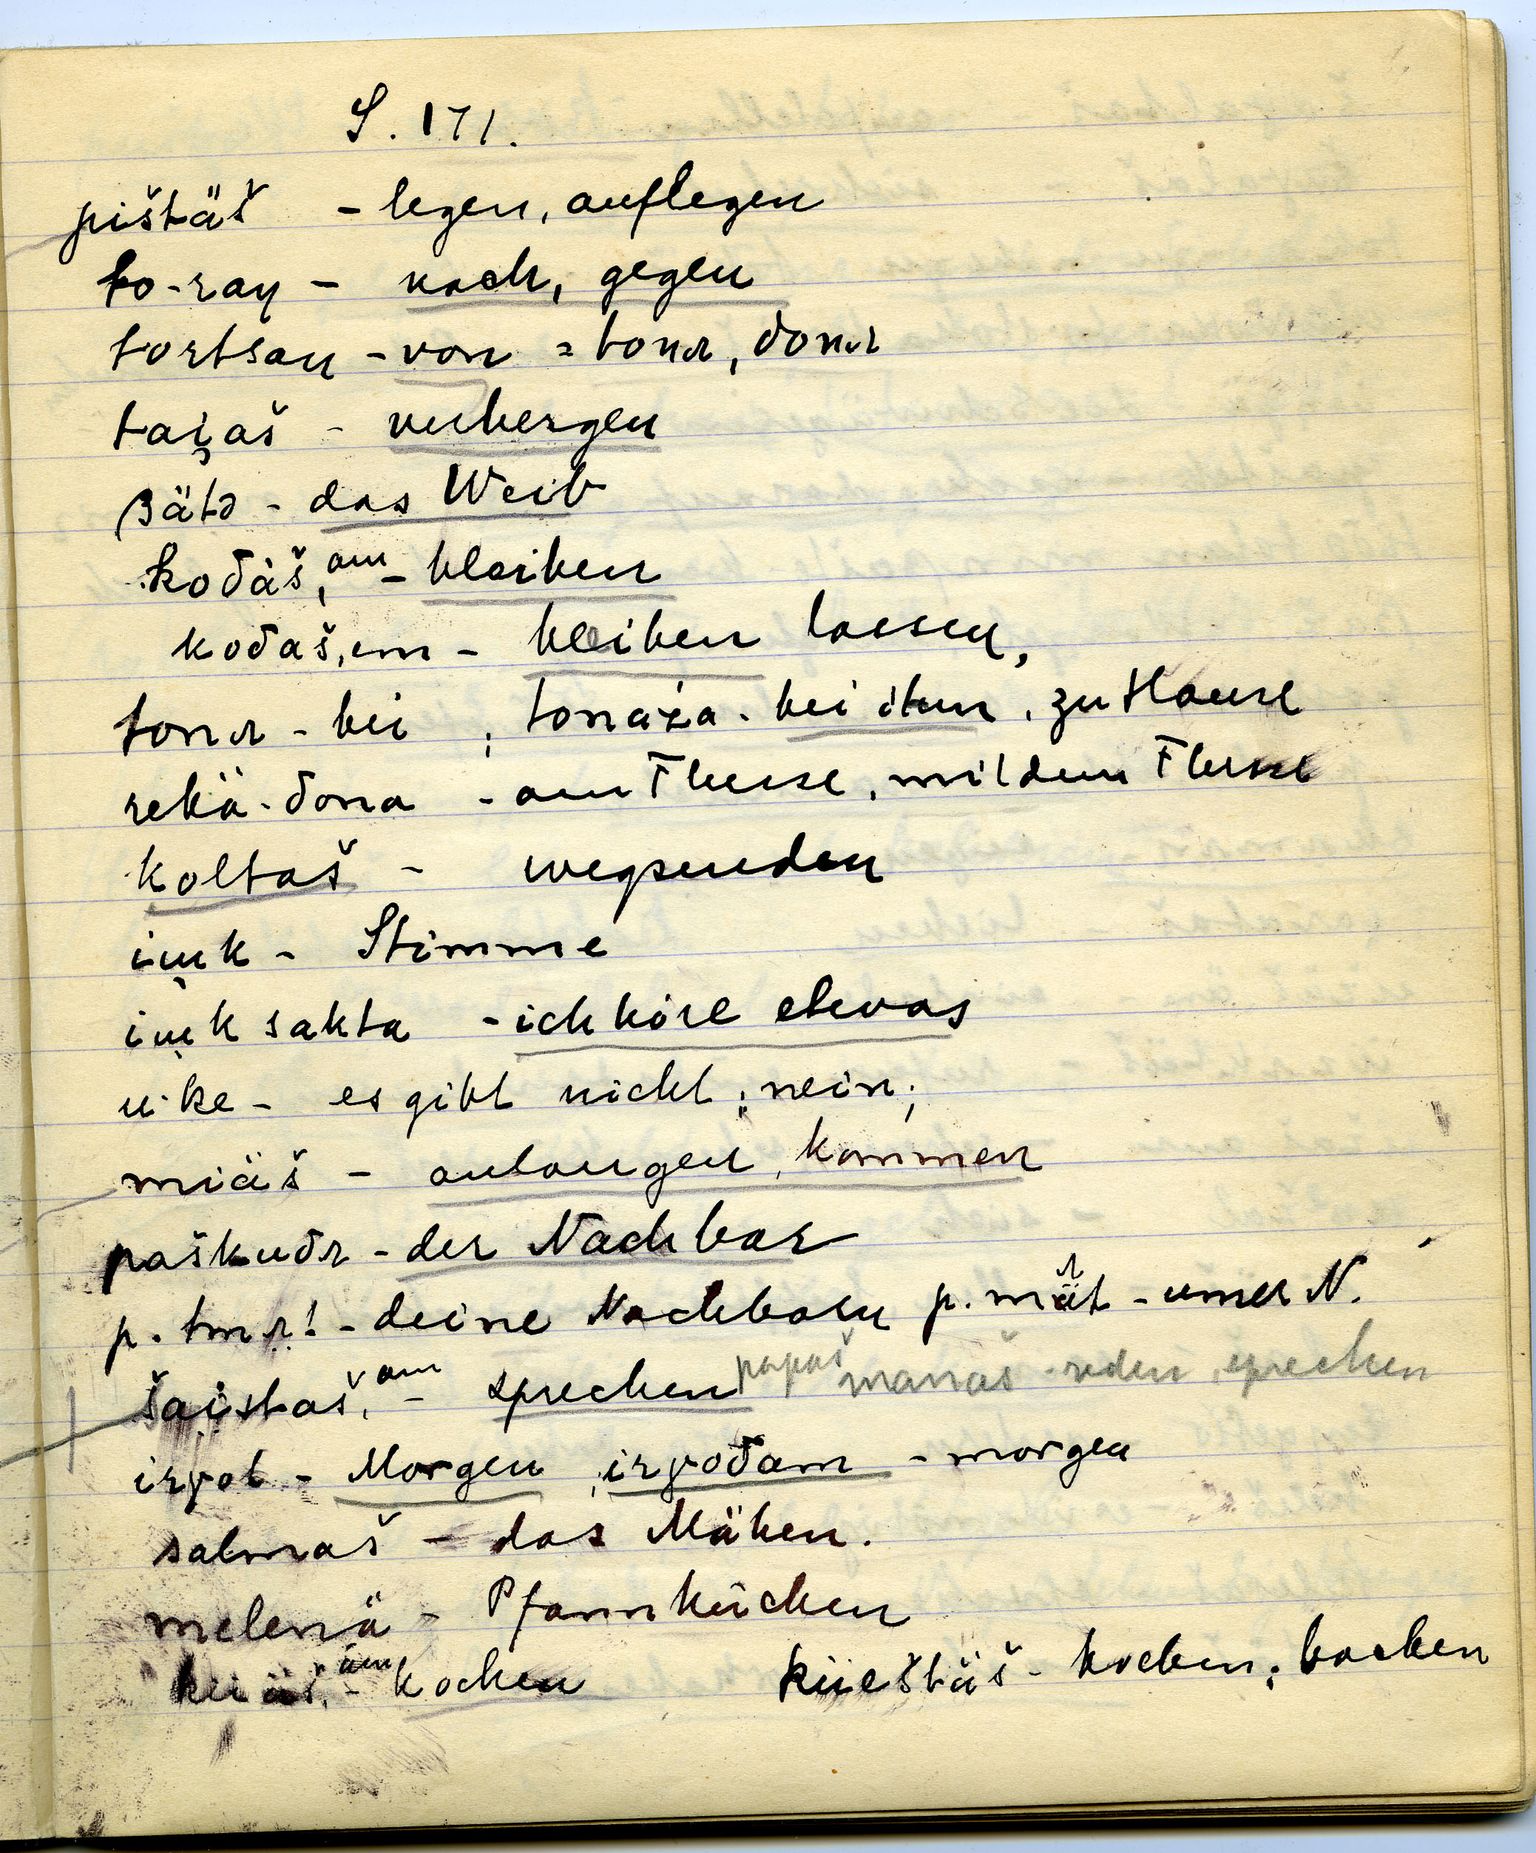 S. 171.
pištäš - legen, auflegen
to-ray - nach, gegen
tortsan - von = tonɹ, δonɹ
taįaš - verbergen
βätə - das Weib
koδaš, am - bleiben
koδaš, em - bleiben lassen,
tonɹ - bei ; tonaža - bei ihm, zu Hause
rekä-δona - am Flusse, mit dem Flusse
koltaš - wegsenden
iu̯k - Stimme
iu̯k sakta - ich höre etwas
uke - es gibt nicht; nein;
miäš - anlangen, kommen
paškuδɹ - der Nachbar
p. tmɹ! - deine Nachbarn p. mɹ̈ät - unser N.
šaistaš, am - sprechen popaš manaš - reden, sprechen
irγot - Morgen, irγoδam - morgen
salmaš - das Mähen.
melenä - Pfannkuchen
küäš, äm - kochen küeštäš - kochen; backen